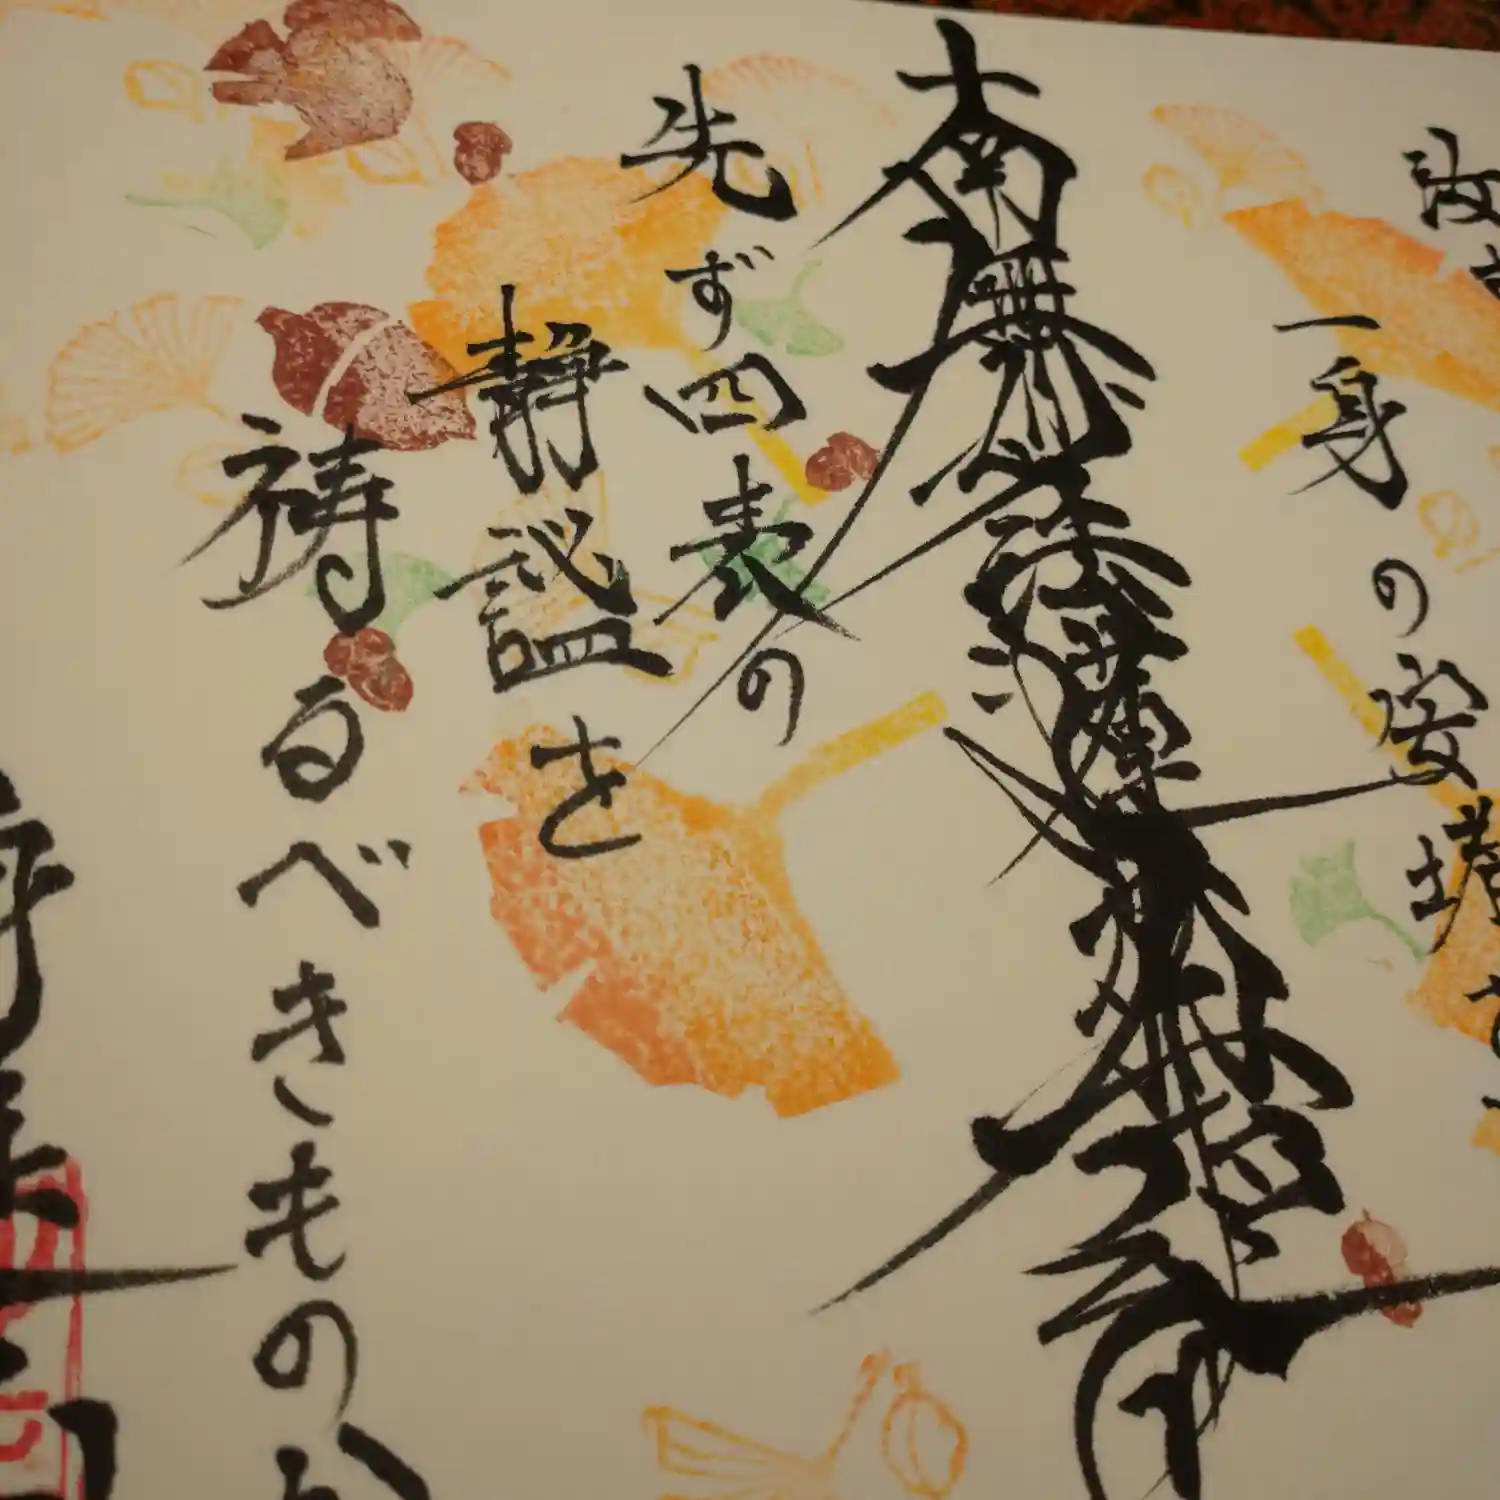 一身の安堵を
南無妙法蓮華経
先ず四表の
静謐を
祷るべきものか